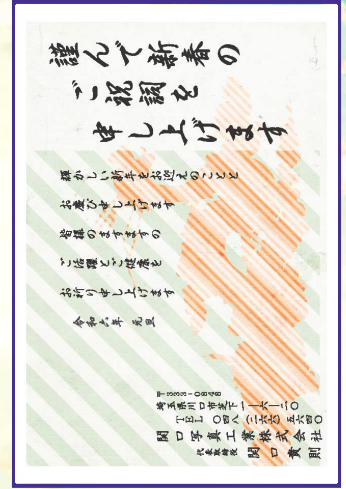 謹んで新春の
ご祝詞を
申し上げます
輝かしい新年をお迎えのことと
お慶び申し上げます
皆様のますますの
ご活躍とご健康を
お祈り申し上げます
令和六年 元旦
〒333-0848
埼玉県川口市芝下一ー六ー二〇
TEL 〇四八(二六六)五六四〇
関口写真工業株式会社
代表取締役 関口貴則